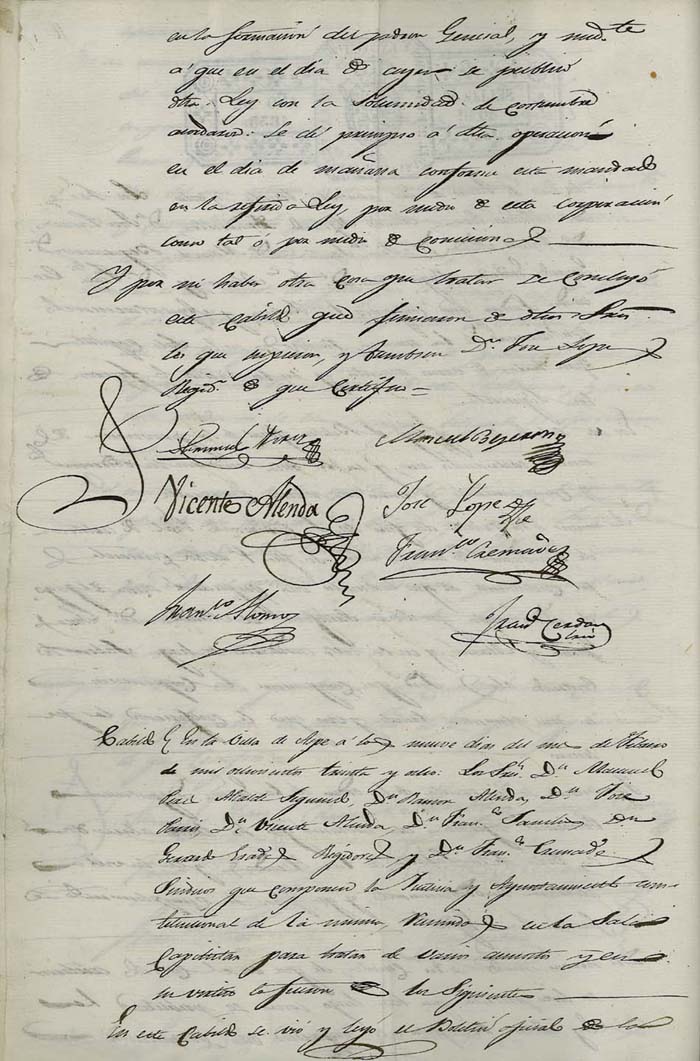 en la formacion del padron General, y med.te
á que en el dia de ayer se publicó
dha. Ley con la solemnidad de costumbre
acordaron: Se dé principio á dha. operacion
en el dia de mañana conforme esta mandado
en la referida Ley, por medio de esta Corporacion
como tal ó por medio de comicion
Y por no haber otra cosa que tratar se concluyó
este Cabildo que firmaron de dhos Sres.
los que supieron, y tambien D.n José Lopez
Regid.r de que Certifico =
Manuel Perez
Manuel Bejerano
Vicente Alenda
José Lopez
Fran.co Cremades
Fran.co Alonso
Fran.co Cerdan
Cabildo En la Villa de Aspe á los nueve dias del mes de Febrero
de mil ochocientos treinta y ocho: Los Sres. D.n Manuel
Perez Alcalde Segundo, D.n Ramon Alenda, D.n José
D.n Vicente Alenda, D.n Fran.co D.n
Gerardo Regidores, y D.n Fran.co Cremades
Sindico que componen la Justicia y Ayuntamiento cons
titucional de la misma, reunidos en la Sala
Capitular para tratar de varios asuntos y en
su virtud lo fueron los siguientes
En este Cabildo se vió y leyó el Boletin oficial de la